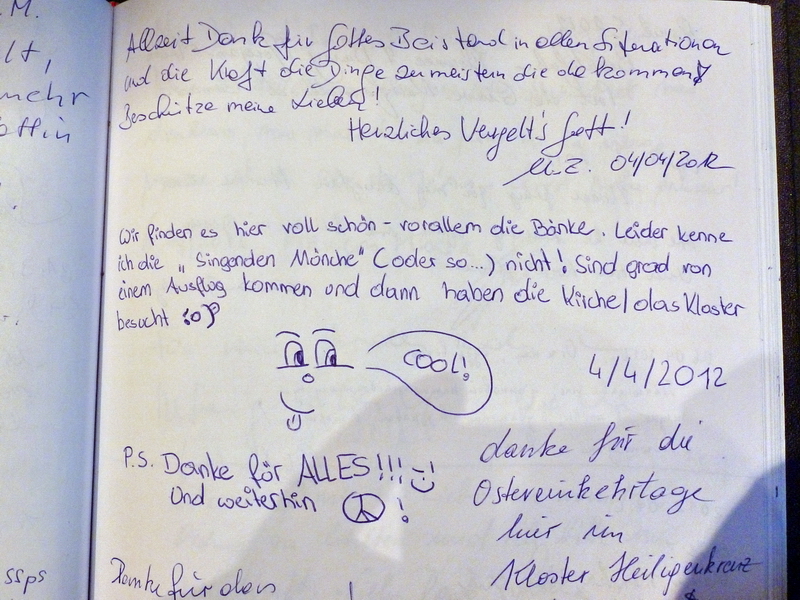 M.
lt,
mehr
ottin
ssps
Allzeit Dank für Gottes Beistand in allen Situationen
und die Kraft die Dinge zu meistern die da kommen
Beschütze meine Lieben!
Herzliches Vergelt's Gott!
M.Z. 04/04/2012
Wir finden es hier voll schön - vorallem die Bänke. Leider kenne
ich die „Singenden Mönche" (oder so...) nicht! Sind grad von
einem Ausflug kommen und dann haben die Kirche/das Kloster
besucht :o)
COOL!
4/4/2012
P.S. Danke för ALLES!!!
Und weiterhin !
danke für die
Ostereinkehrtage
hier im
Kloster Heiligenkreuz
Danke für den